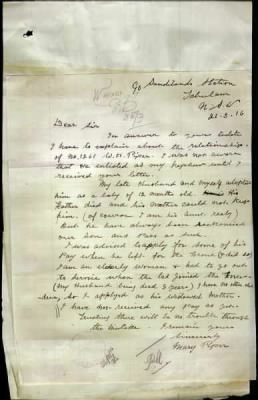 C/o Sandilands Station
Tabulam
N.S.W
21.3.16
Dear Sir
In answer to yours
I have to explain about the relationship
of No. 1261 W. H. Piper. I was not aware
that he enlisted as my nephew until I
received your letter.
My late Husband and myself adopted
him as a baby of 2 months old his
Father died and his mother could not keep
him. (of course I am his aunt really)
But he have always been reckoned
our son and pass as such.
I was advised to apply for some of his
Pay when he left for the Front (& did so)
I am an elderly woman & had to go out
to service when the lad joined the
(My Husband being dead 3 years) I have no other
so I applied as his widowed mother.
I have not received any pay as yet.
Trusting there will be no trouble through
the mistake. I remain yours
Sincerely
Mary